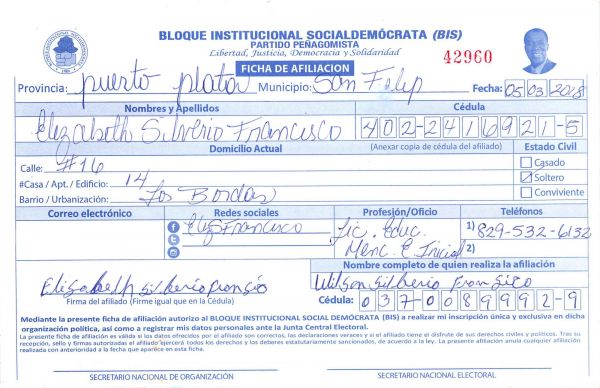 BLOQUE INSTITUCIONAL SOCIALDEMÓCRATA (BIS)
PARTIDO PEÑAGOMISTA
Libertad, Justicia, Democracia y Solidaridad
FICHA DE AFILIACION
42960
Provincia: puerto plata Municipio: San Felip Fecha: 05/03/2018
Nombres y Apellidos Cédula
Elizabeth Silverio Francisco 402-2416921-5
Domicilio Actual (Anexar copia de cédula del afiliado) Estado Civil
Calle: #16 Casado
#Casa / Apt. / Edificio: 14 Soltero
Barrio / Urbanización: Los Bordas Conviviente
Correo electrónico Redes sociales Profesión/Oficio Teléfonos
Francisco Lic. Educ. 1) 829-532-6132
Menc. E. Inicial 2)
Nombre completo de quien realiza la afiliación
Elisabelh silberio Wilson Silberio Fransico
Firma del afiliado (Firme igual que en la Cédula) Cédula: 037-0089992-9
Mediante la presente ficha de afiliación autorizo al BLOQUE INSTITUCIONAL SOCIAL DEMÓCRATA (BIS) a realizar mi inscripción única y exclusiva en dicha
organización política, así como a registrar mis datos personales ante la Junta Central Electoral.
La presente ficha de afiliación es válida si las datos ofrecidos por el afiliado son correctos, las declaraciones veraces y si el afiliado tiene el disfrute de sus derechos civiles y políticos. Tras su
recepción, sello y firmas autorizadas el afiliado ejercerá todos los derechos y los deberes estatutariamente sancionados, de acuerdo a la ley. La presente afiliación anula cualquier afiliación
realizada con anterioridad a la fecha que aparece en esta ficha.
SECRETARIO NACIONAL DE ORGANIZACIÓN SECRETARIO NACIONAL ELECTORAL